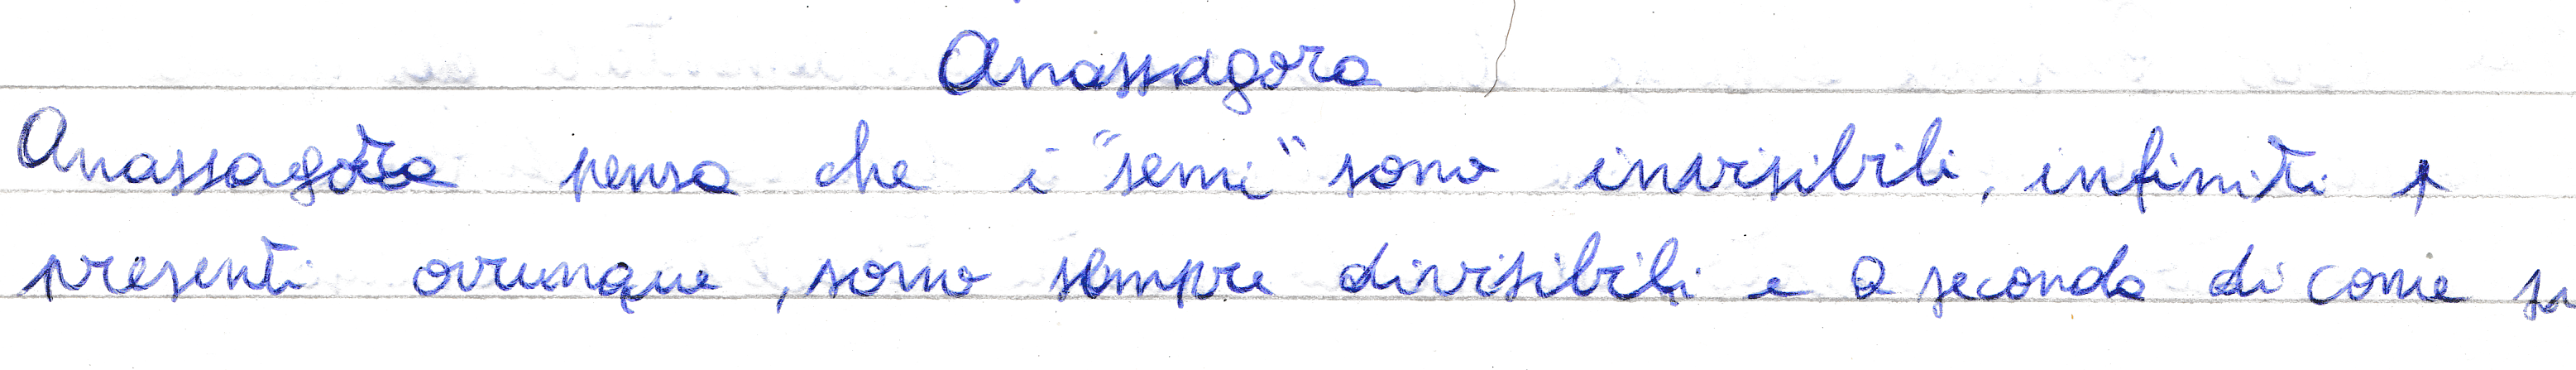 Anassagora
Anassagora pensa che i "semi" sono invisibili, infiniti
presenti ovunque, sono sempre divisibili e a seconda di come si